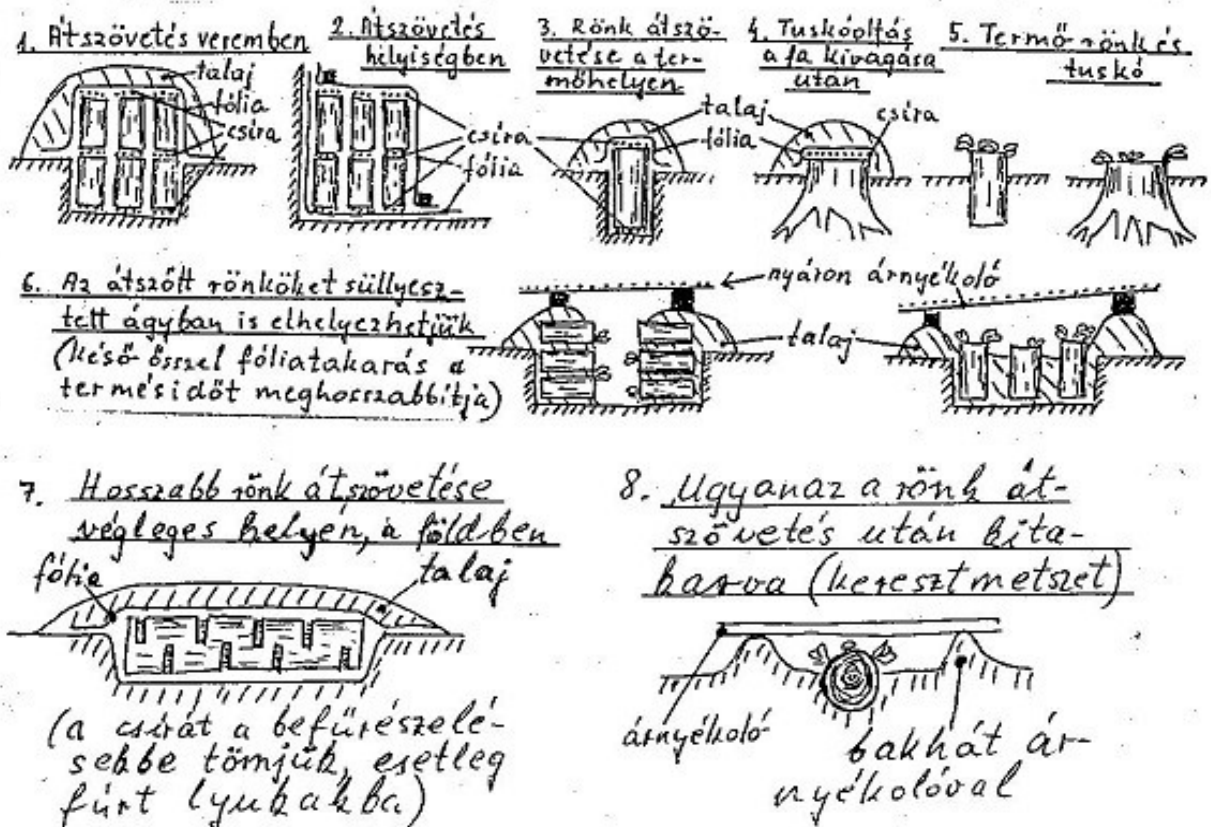 1. Átszövetés veremben
talaj
fólia
csíra
2. Átszövetés
helyiségben
csíra
fólia
3. Rönk átszö-
vetése a ter-
mőhelyen
talaj
fólia
4. Tuskóoltás
a fa kivágása
után
csíra
5. Termő rönk és
tuskó
6. Az átszőtt rönköket süllyesz-
tett ágyban is elhelyezhetjük
(késő ősszel fóliatakarás a
termésidőt meghosszabbítja)
nyáron árnyékoló
talaj
7. Hosszabb rönk átszövetése
végleges helyen, a földben
fólia
talaj
(a csírát a befűrészelé-
sekbe tömjük, esetleg
fúrt lyukakba)
8. Ugyanaz a rönk át-
szövetés után kita-
karva (keresztmetszet)
árnyékoló
bakhát ár-
nyékolóval